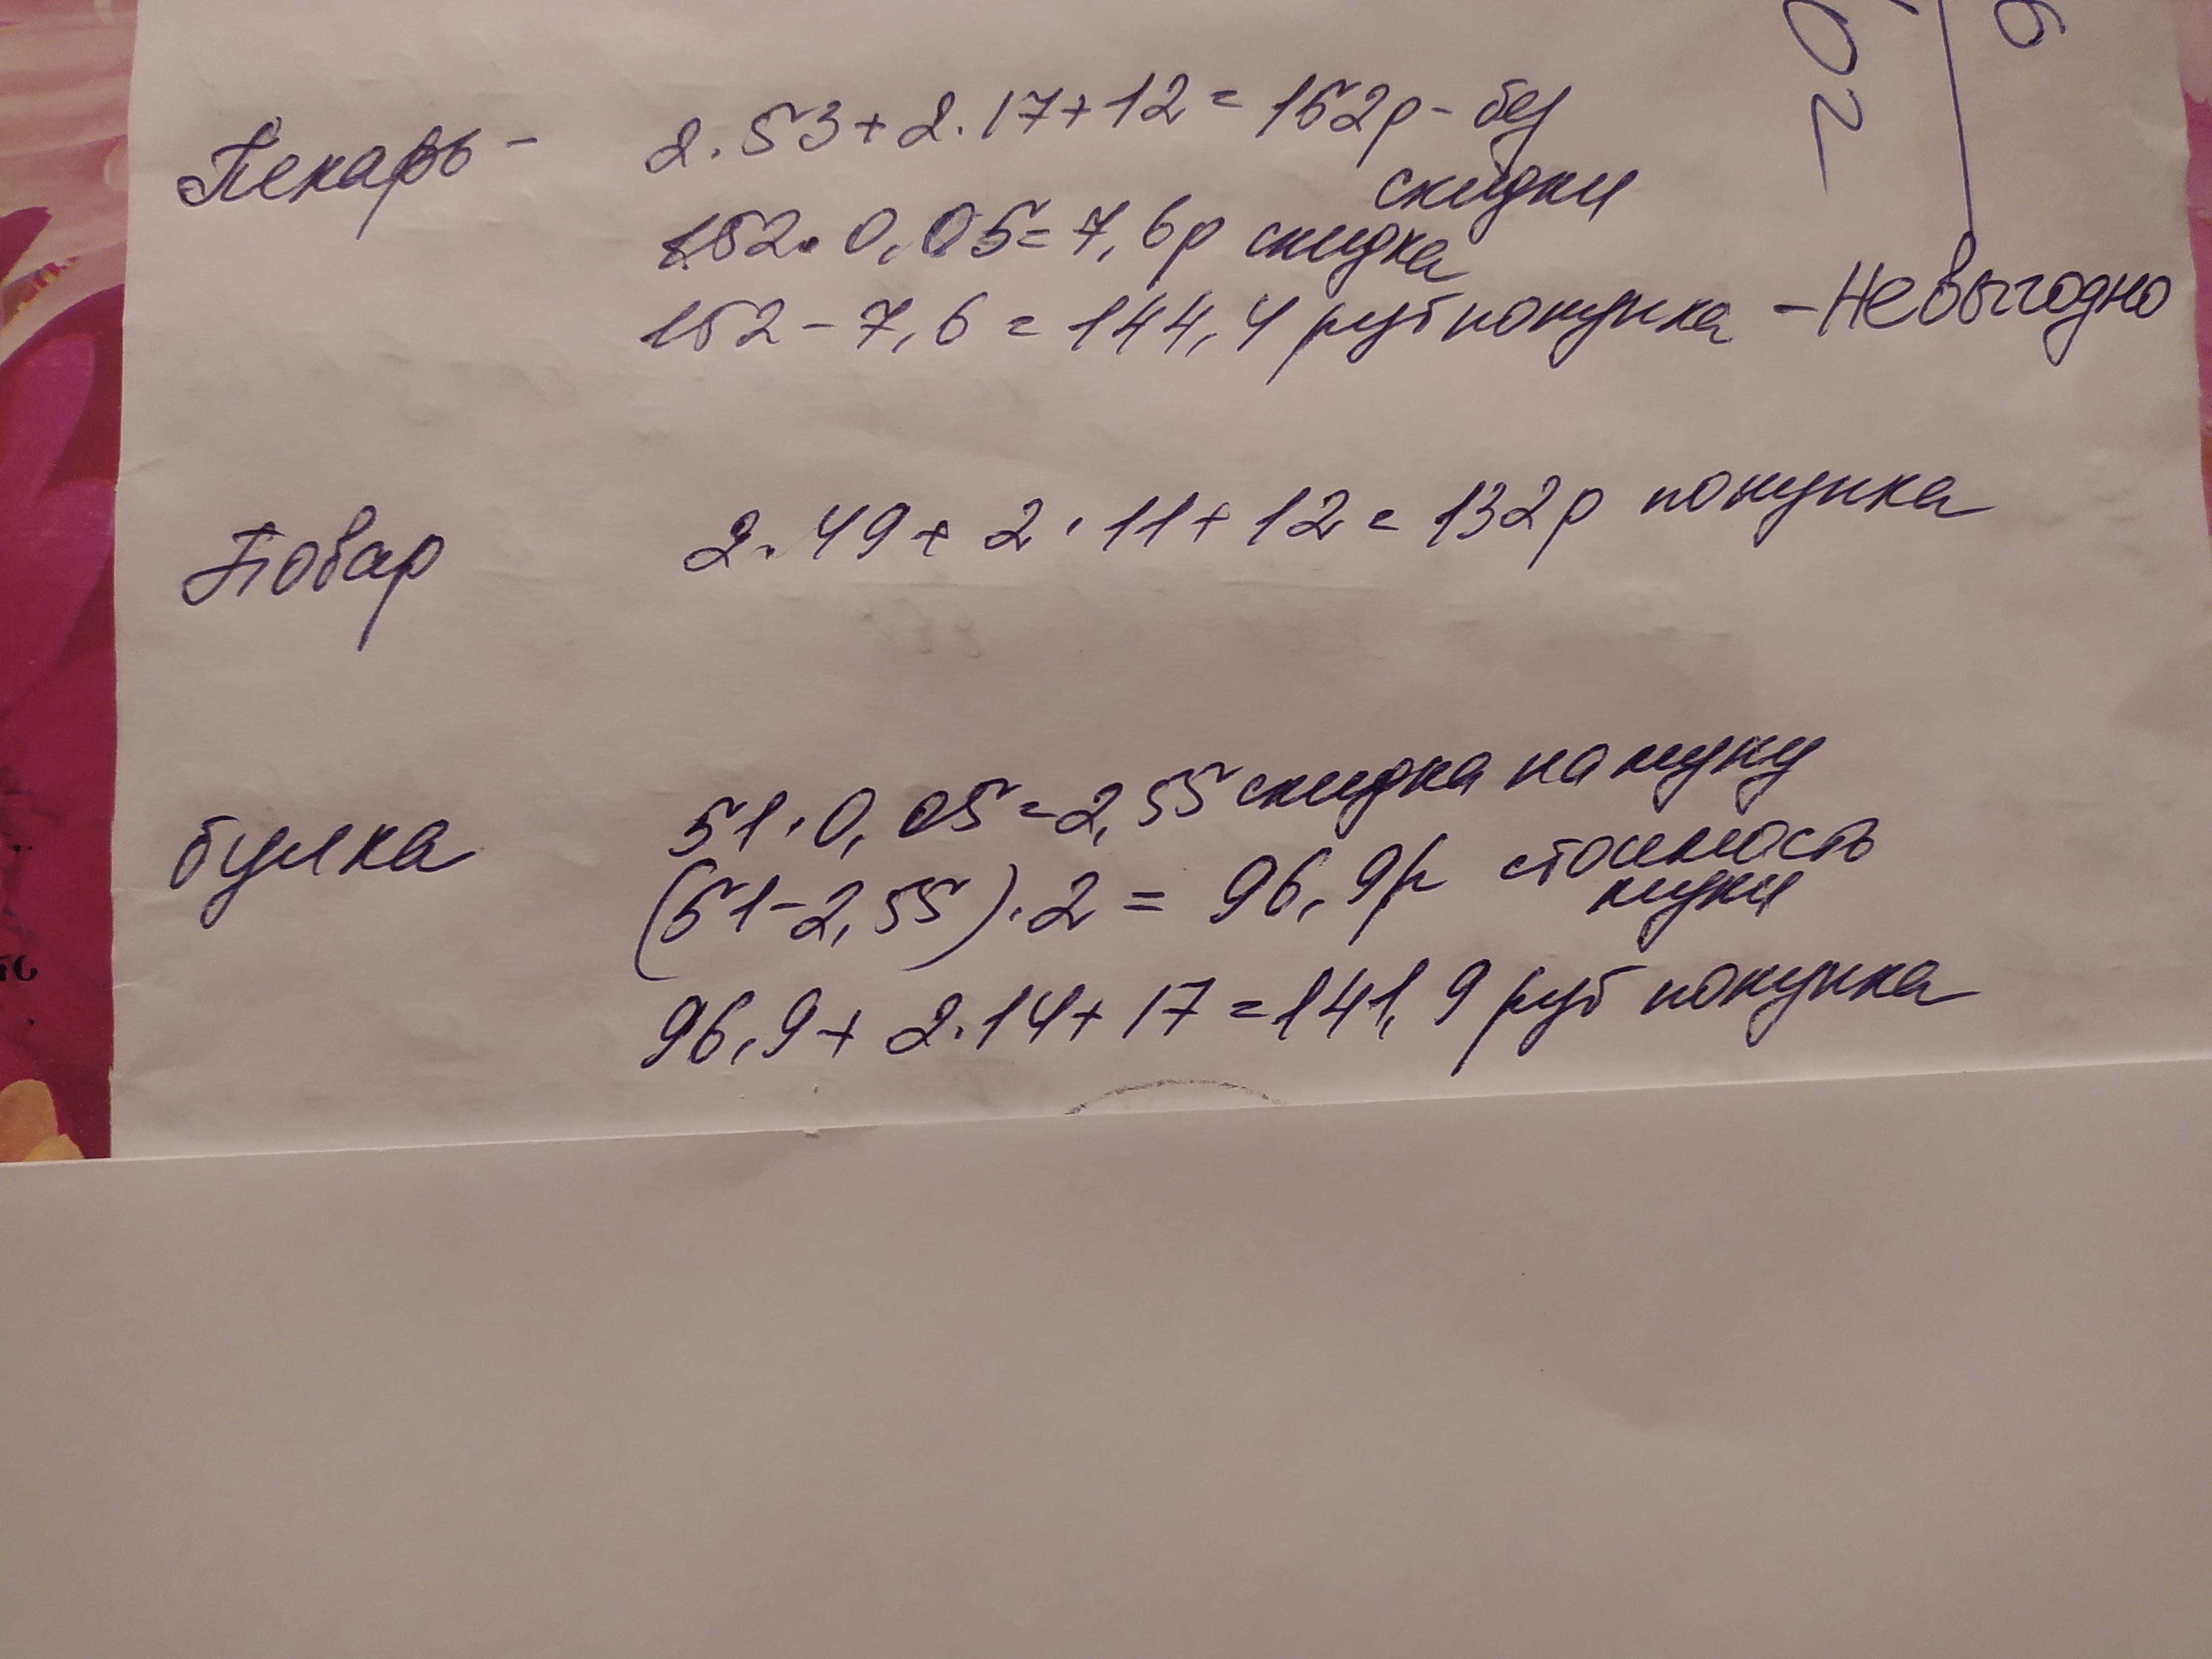 Пекарь - 2·53+2·17+12=152р - без
скидки
152·0,05=7,6р скидка
152-7,6=144,4 руб покупка - Невыгодно
Повар 2·49+2·11+12=132р покупка
булка 51·0,05=2,55 скидка на муку
(51-2,55)·2=96,9р стоимость
муки
96,9+2·14+17=141,9 руб покупка
6
02